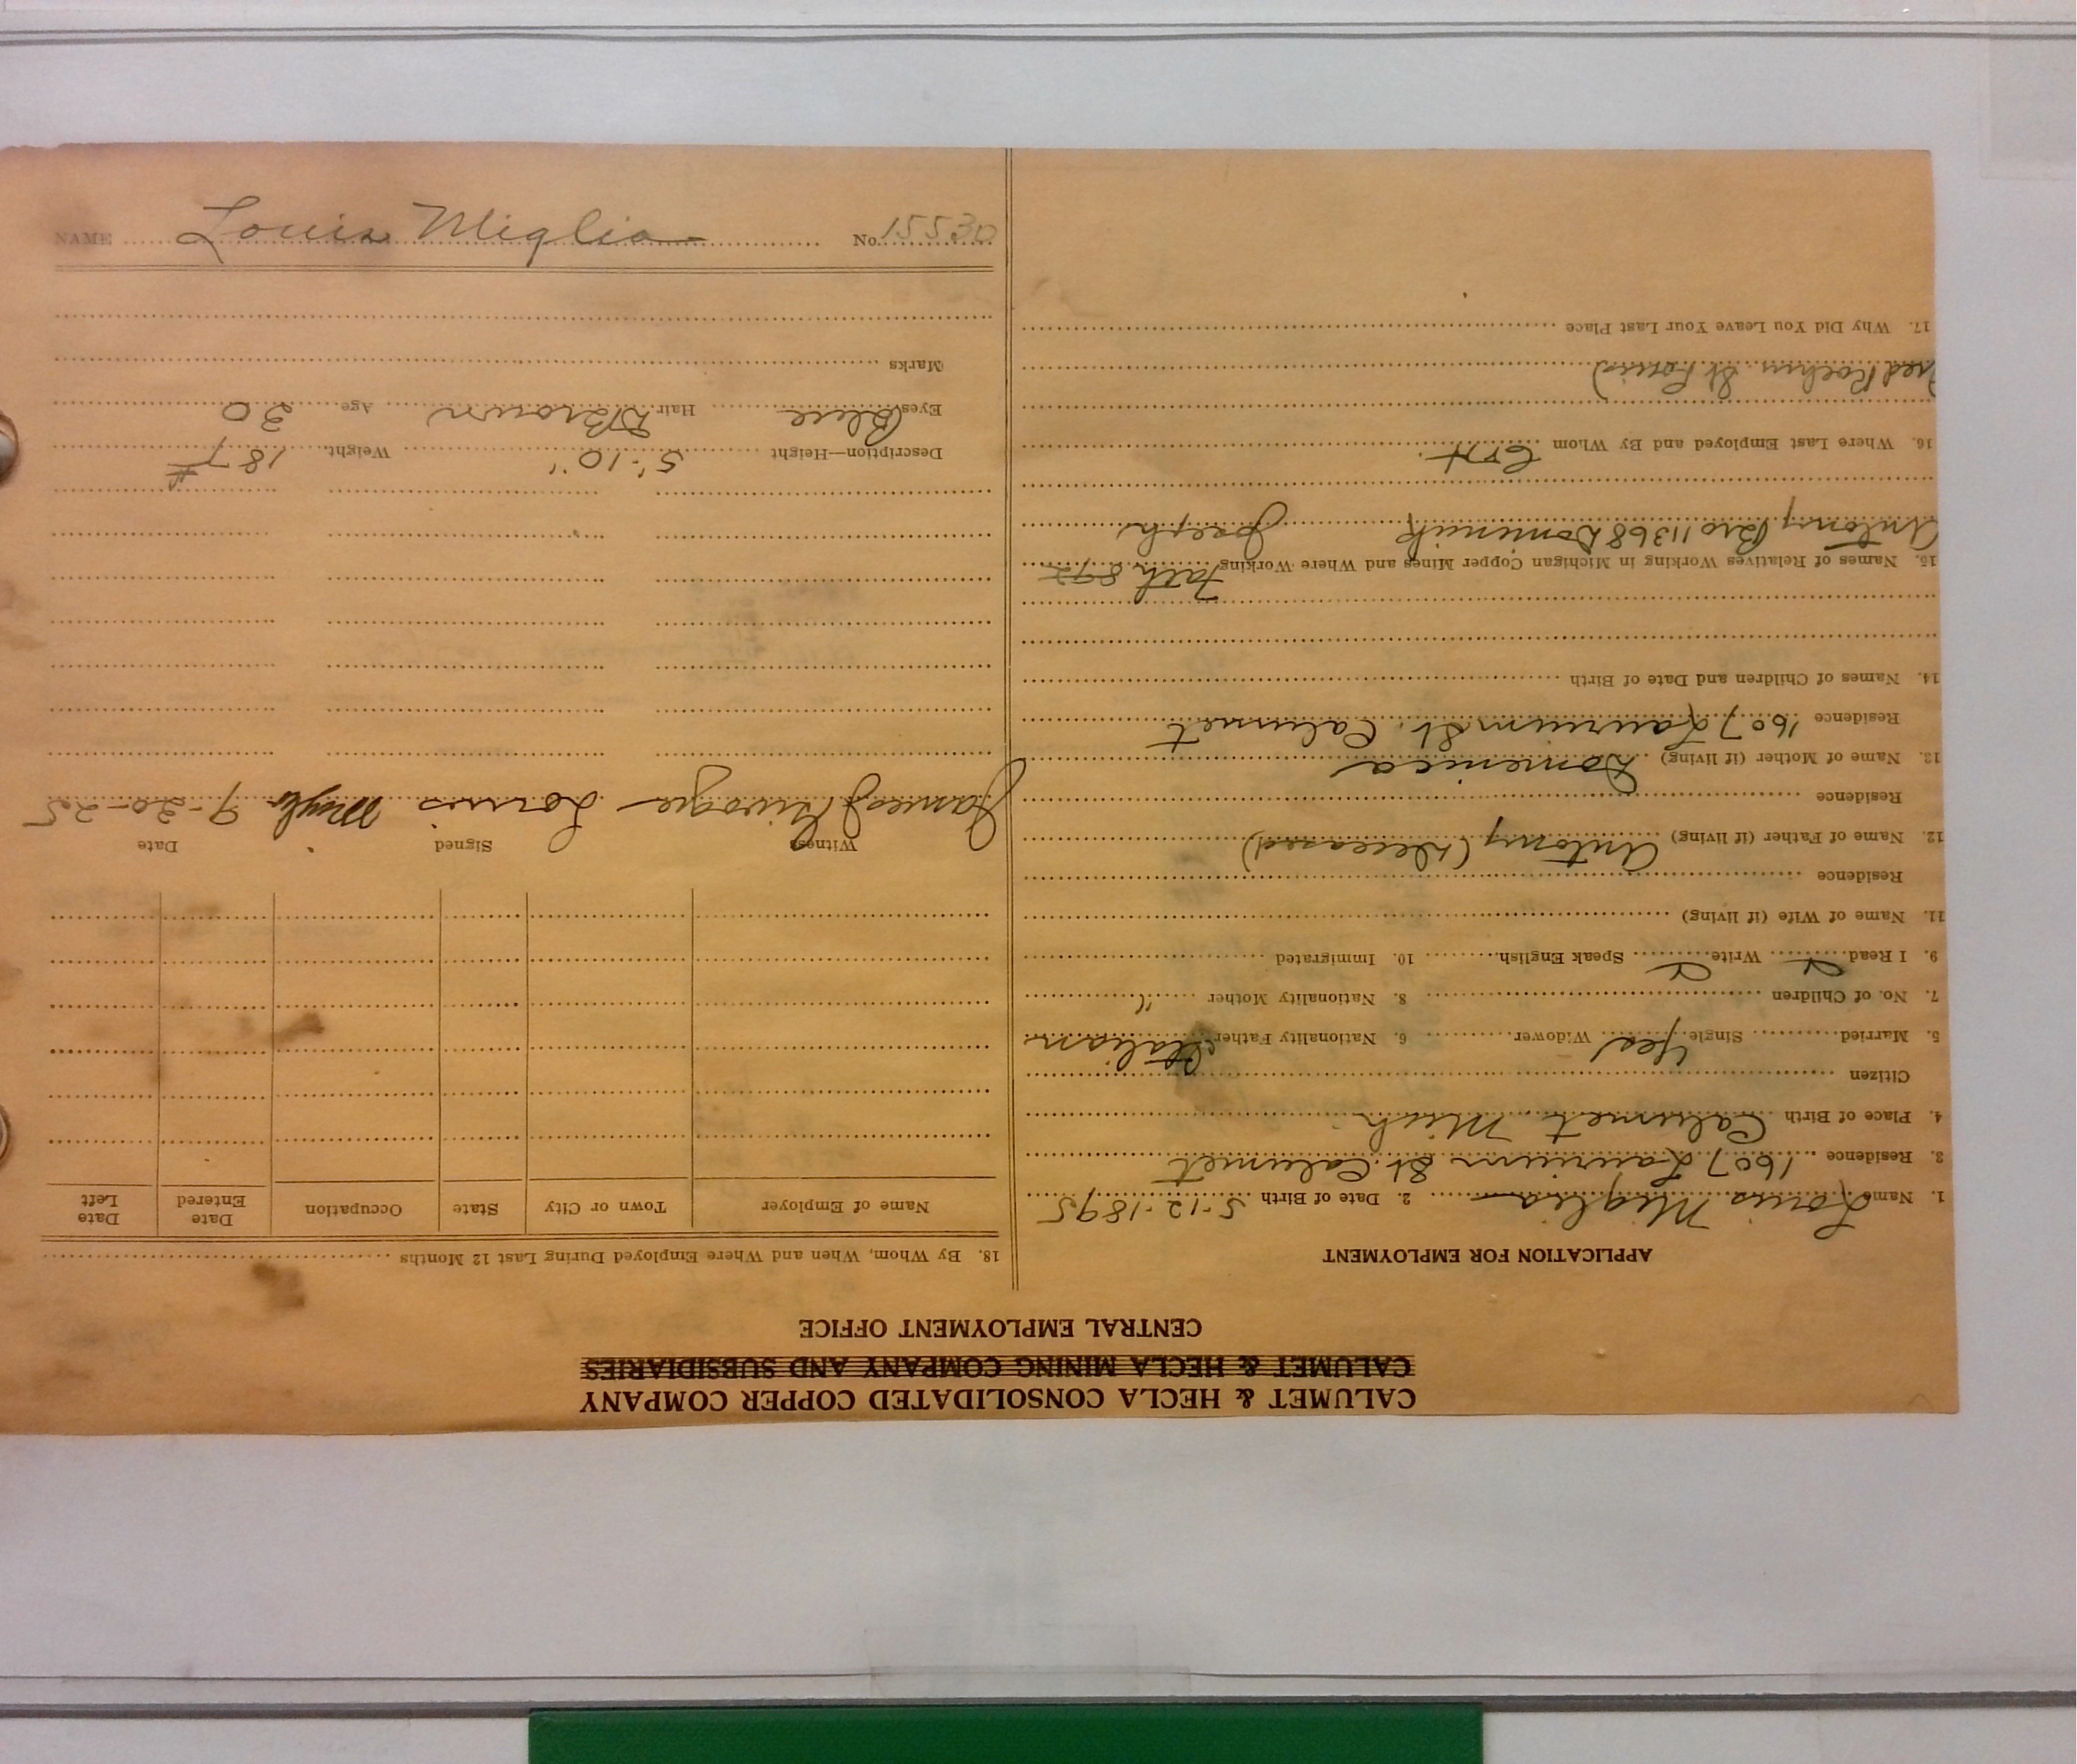 CALUMET & HECLA CONSOLIDATED COPPER COMPANY
CALUMET & HECLA MINING COMPANY AND SUBSIDIARIES
CENTRAL EMPLOYMENT OFFICE
APPLICATION FOR EMPLOYMENT
1. Name Louis Miglio 2. Date of Birth 5-12-1895
3. Residence 1607 Laurium St. Calumet
4. Place of Birth Calumet Mich
Citizen
5. Married Single Yes Widower 6. Nationality Father Italian
7. No. of Children 8. Nationality Mother "
9. I Read Write Speak English 10. Immigrated
11. Name of Wife (if living)
Residence
12. Name of Father (if living) Antony (Deceased)
Residence
13. Name of Mother (if living) Domenica
Residence 1607 Laurium St. Calumet
14. Names of Children and Date of Birth
15. Names of Relatives Working in Michigan Copper Mines and Where Working
Antony Bro 11368 Dominick Joseph
16. Where Last Employed and By Whom
St Louis)
17. Why Did You Leave Your Last Place
18. By Whom, When and Where Employed During Last 12 Months
Name of Employer Town or City State Occupation Date Entered Date Left
Witness Signed Date
James Louis Miglio 9-20-25
Description—Height 5'-10" Weight 187#
Eyes Blue Hair DBrown Age 30
Marks
NAME Louis Miglio No. 15530